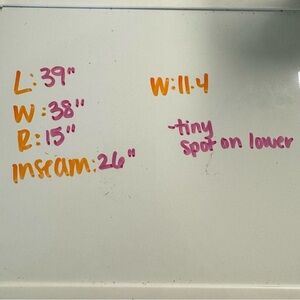 L: 39"
W: 38"
R: 15"
Inseam: 26"
W: 11.4
-tiny
spot on lower